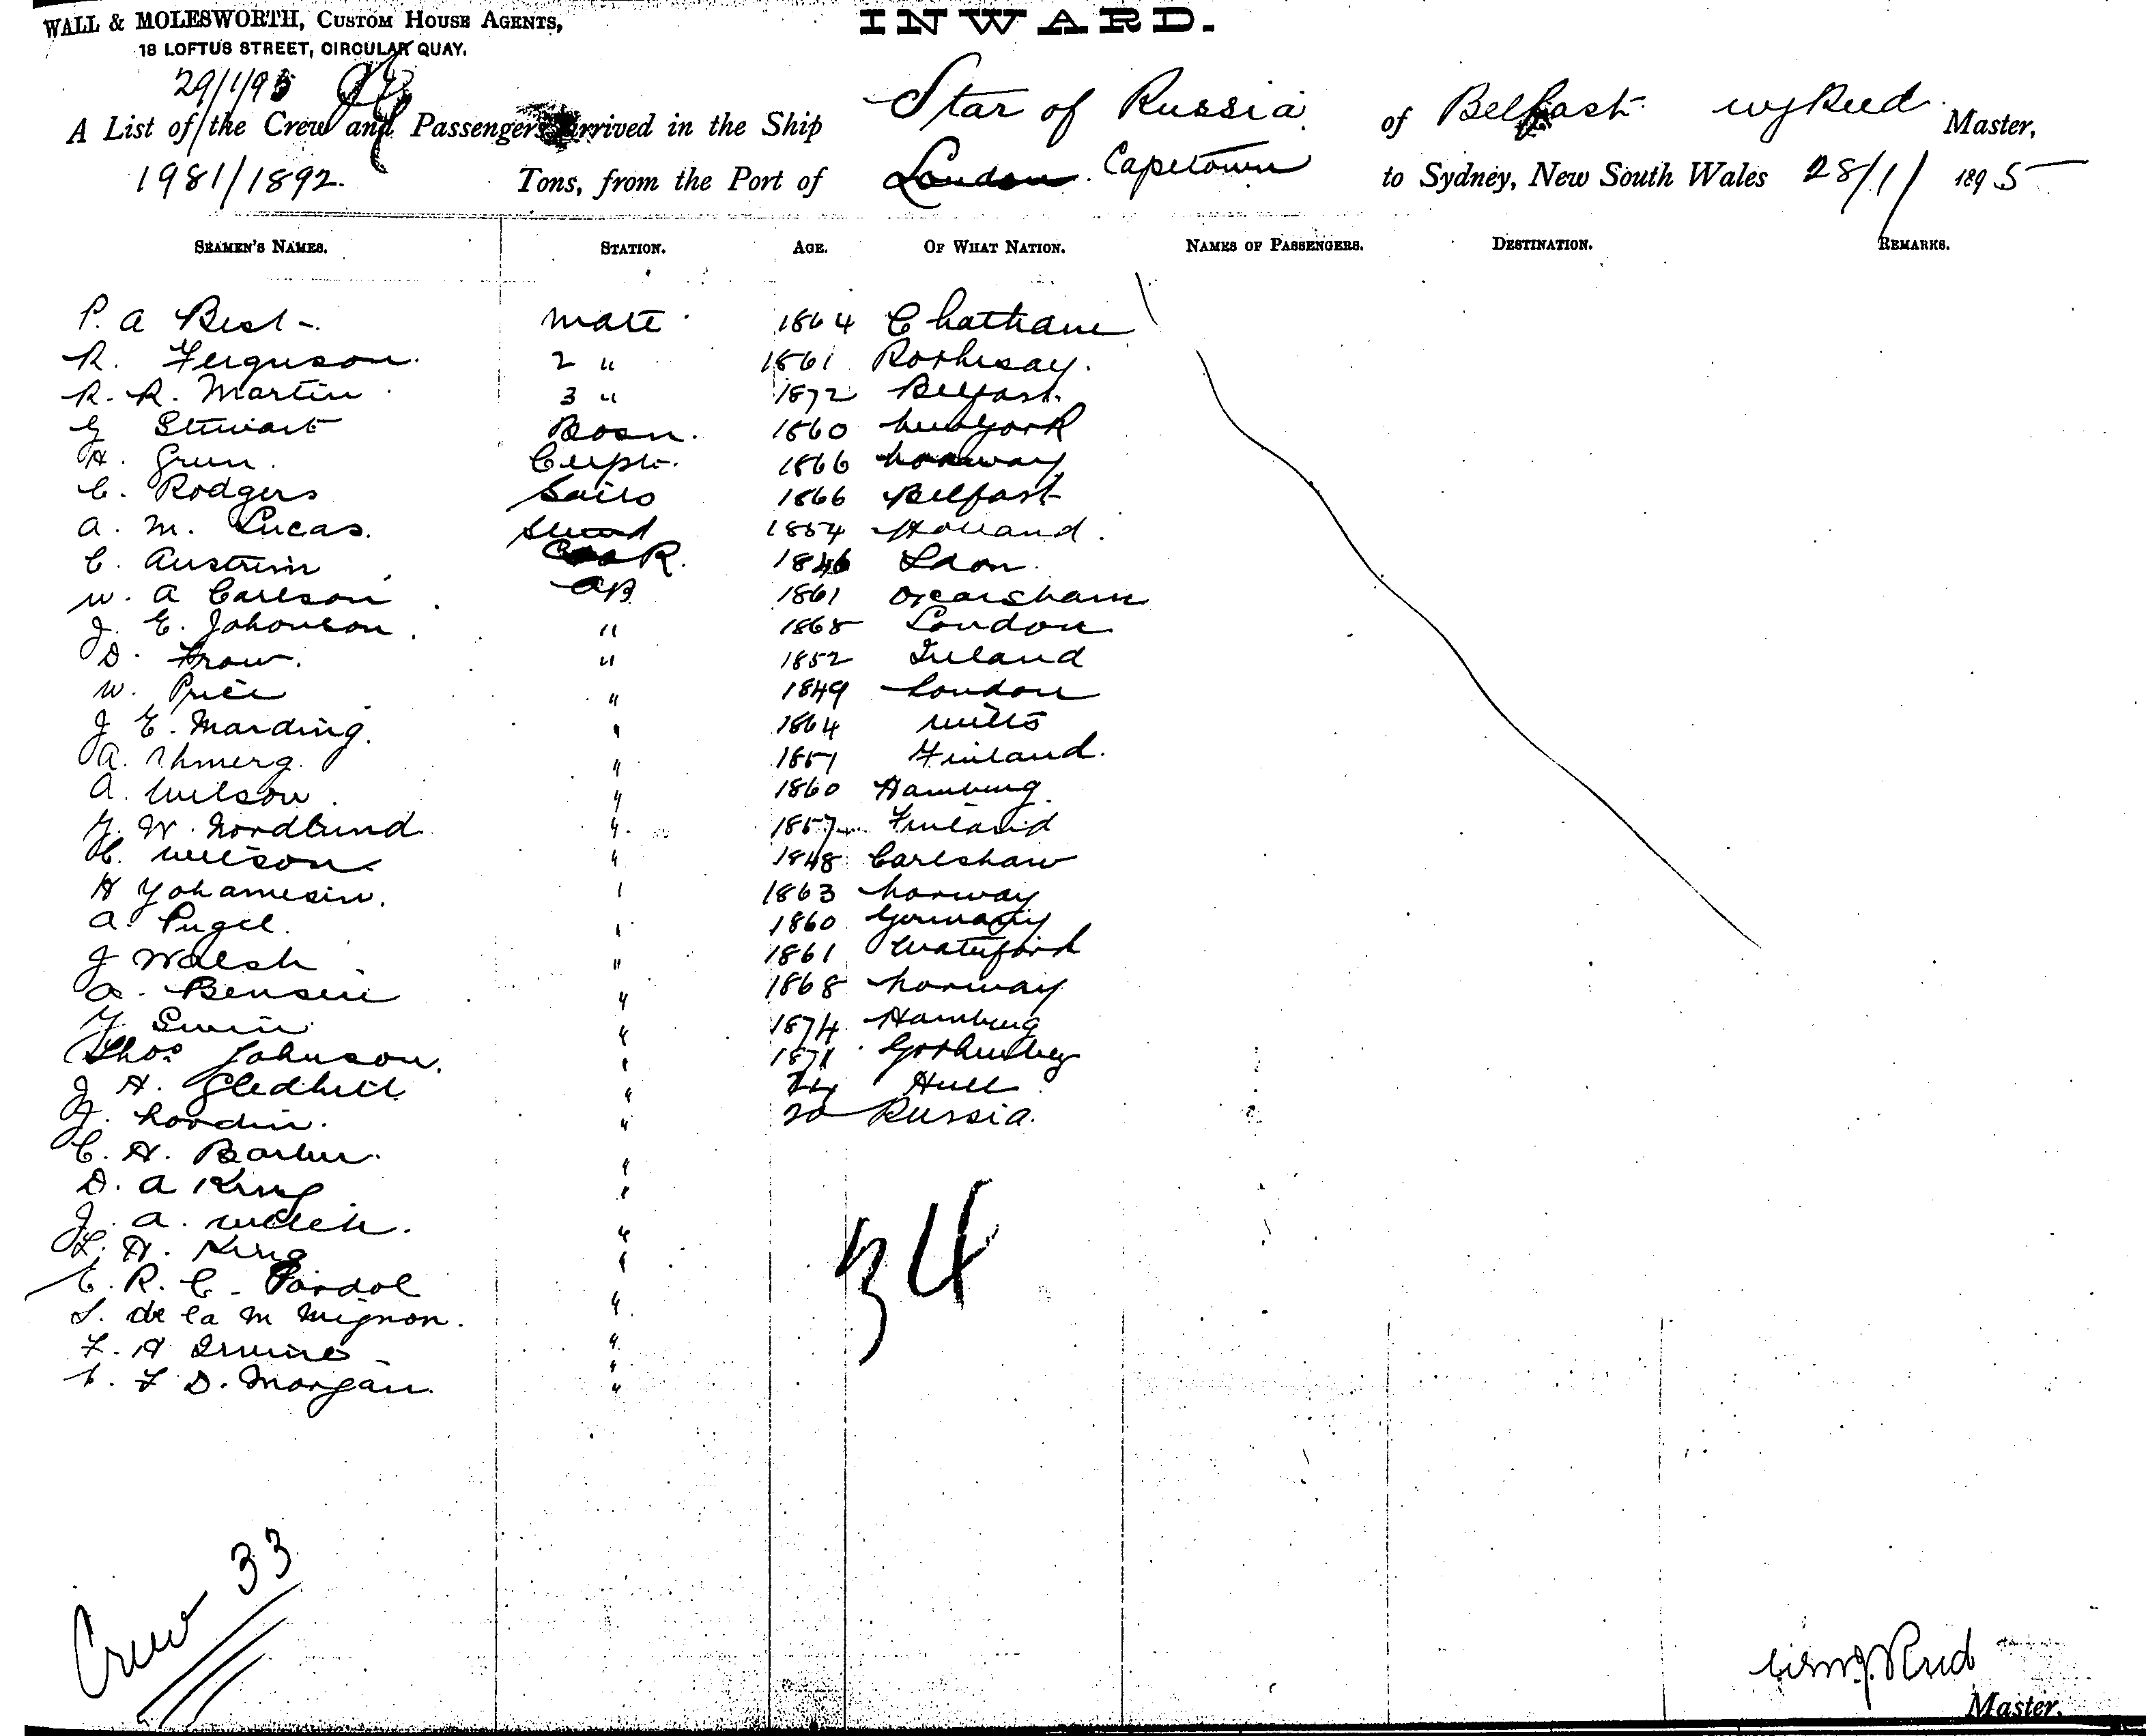 WALL & MOLESWORTH, CUSTOM HOUSE AGENTS,
18 LOFTUS STREET, CIRCULAR QUAY.
INWARD.
29/1/95
A List of the Crew and Passengers arrived in the Ship Star of Russia of Belfast W J Reed Master,
1981/1892. Tons, from the Port of London Capetown to Sydney, New South Wales 28/1/ 1895
SEAMEN'S NAMES. STATION. AGE. OF WHAT NATION. NAMES OF PASSENGERS. DESTINATION. REMARKS.
P. A Best - mate 1864 Chatham
R. Ferguson. 2 " 1861 Rothesay.
R. R. Martin 3 " 1872 Belfast.
G Stewart Bosn. 1860 New York
H. Grun. 1866 Norway
C. Rodgers Sails 1866 Belfast
A. M. Lucas. 1854 Holland.
C. Cook. 1846
W. A Carlson AB 1861
J. E. " 1868 London
D. " 1852 Ireland
W. Price " 1849 London
J E. Marding. " 1864 Wilts
A. " 1857 Finland.
A. Wilson. " 1860 Hamburg.
W. Nordlund " 1857 Finland
C. Wilson " 1848
H Yohannesin. " 1863 Norway
A. Pugel. " 1860 Germany
J Walsh " 1861 Waterford
A. Bensen " 1868 Norway
" 1874 Hamburg
Thos Johnson. " 1871 Gothenburg
J H. Gledhill " 24 Hull
J. " 20 Russia.
C. H. Barber. "
D. A King "
J. A. "
F. H. King "
E. R. C. "
S. de la M Mignon. "
F. H Irvine "
F D. Morgan. "
34
Crew 33
Wm. J. Reed
Master.